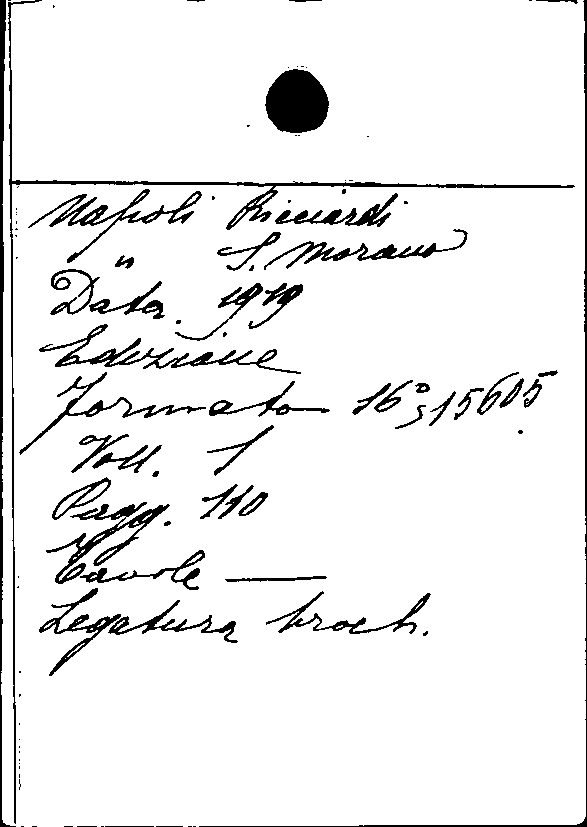 Napoli Ricciardi
" S. Morano
Data. 1919
Edizione
Formato 16°
Voll. 1
Pagg. 110
Tavole —
Legatura broch.